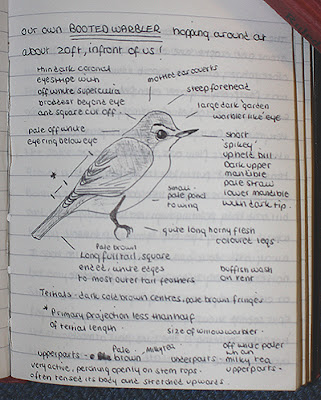 our own BOOTED WARBLER hopping around at
about 20ft, infront of us!
thin dark coronal
eyestripe with
off white supercilia
broadest beyond eye
and square cut off.
mottled ear coverts
steep forehead
large dark 'garden
warbler like' eye
pale off white
eyering below eye
short
spikey
upheld bill
dark upper
mandible
pale straw
lower mandible
with dark tip.
*
small
pale panel
to wing
quite long horny flesh
coloured legs
Pale brown
Long full tail, square
ended, white edges
to most outer tail feathers
buffish wash
on rear
Tertials - dark cold brown centres, pale brown fringes
* Primary projection less than half
of tertial length.
size of willow warbler.
upperparts - Pale, milky tea
brown
underparts - off white paler
than an
milky tea
upperparts.
very active, perching openly on stem tops.
often tensed its body and stretched upwards.